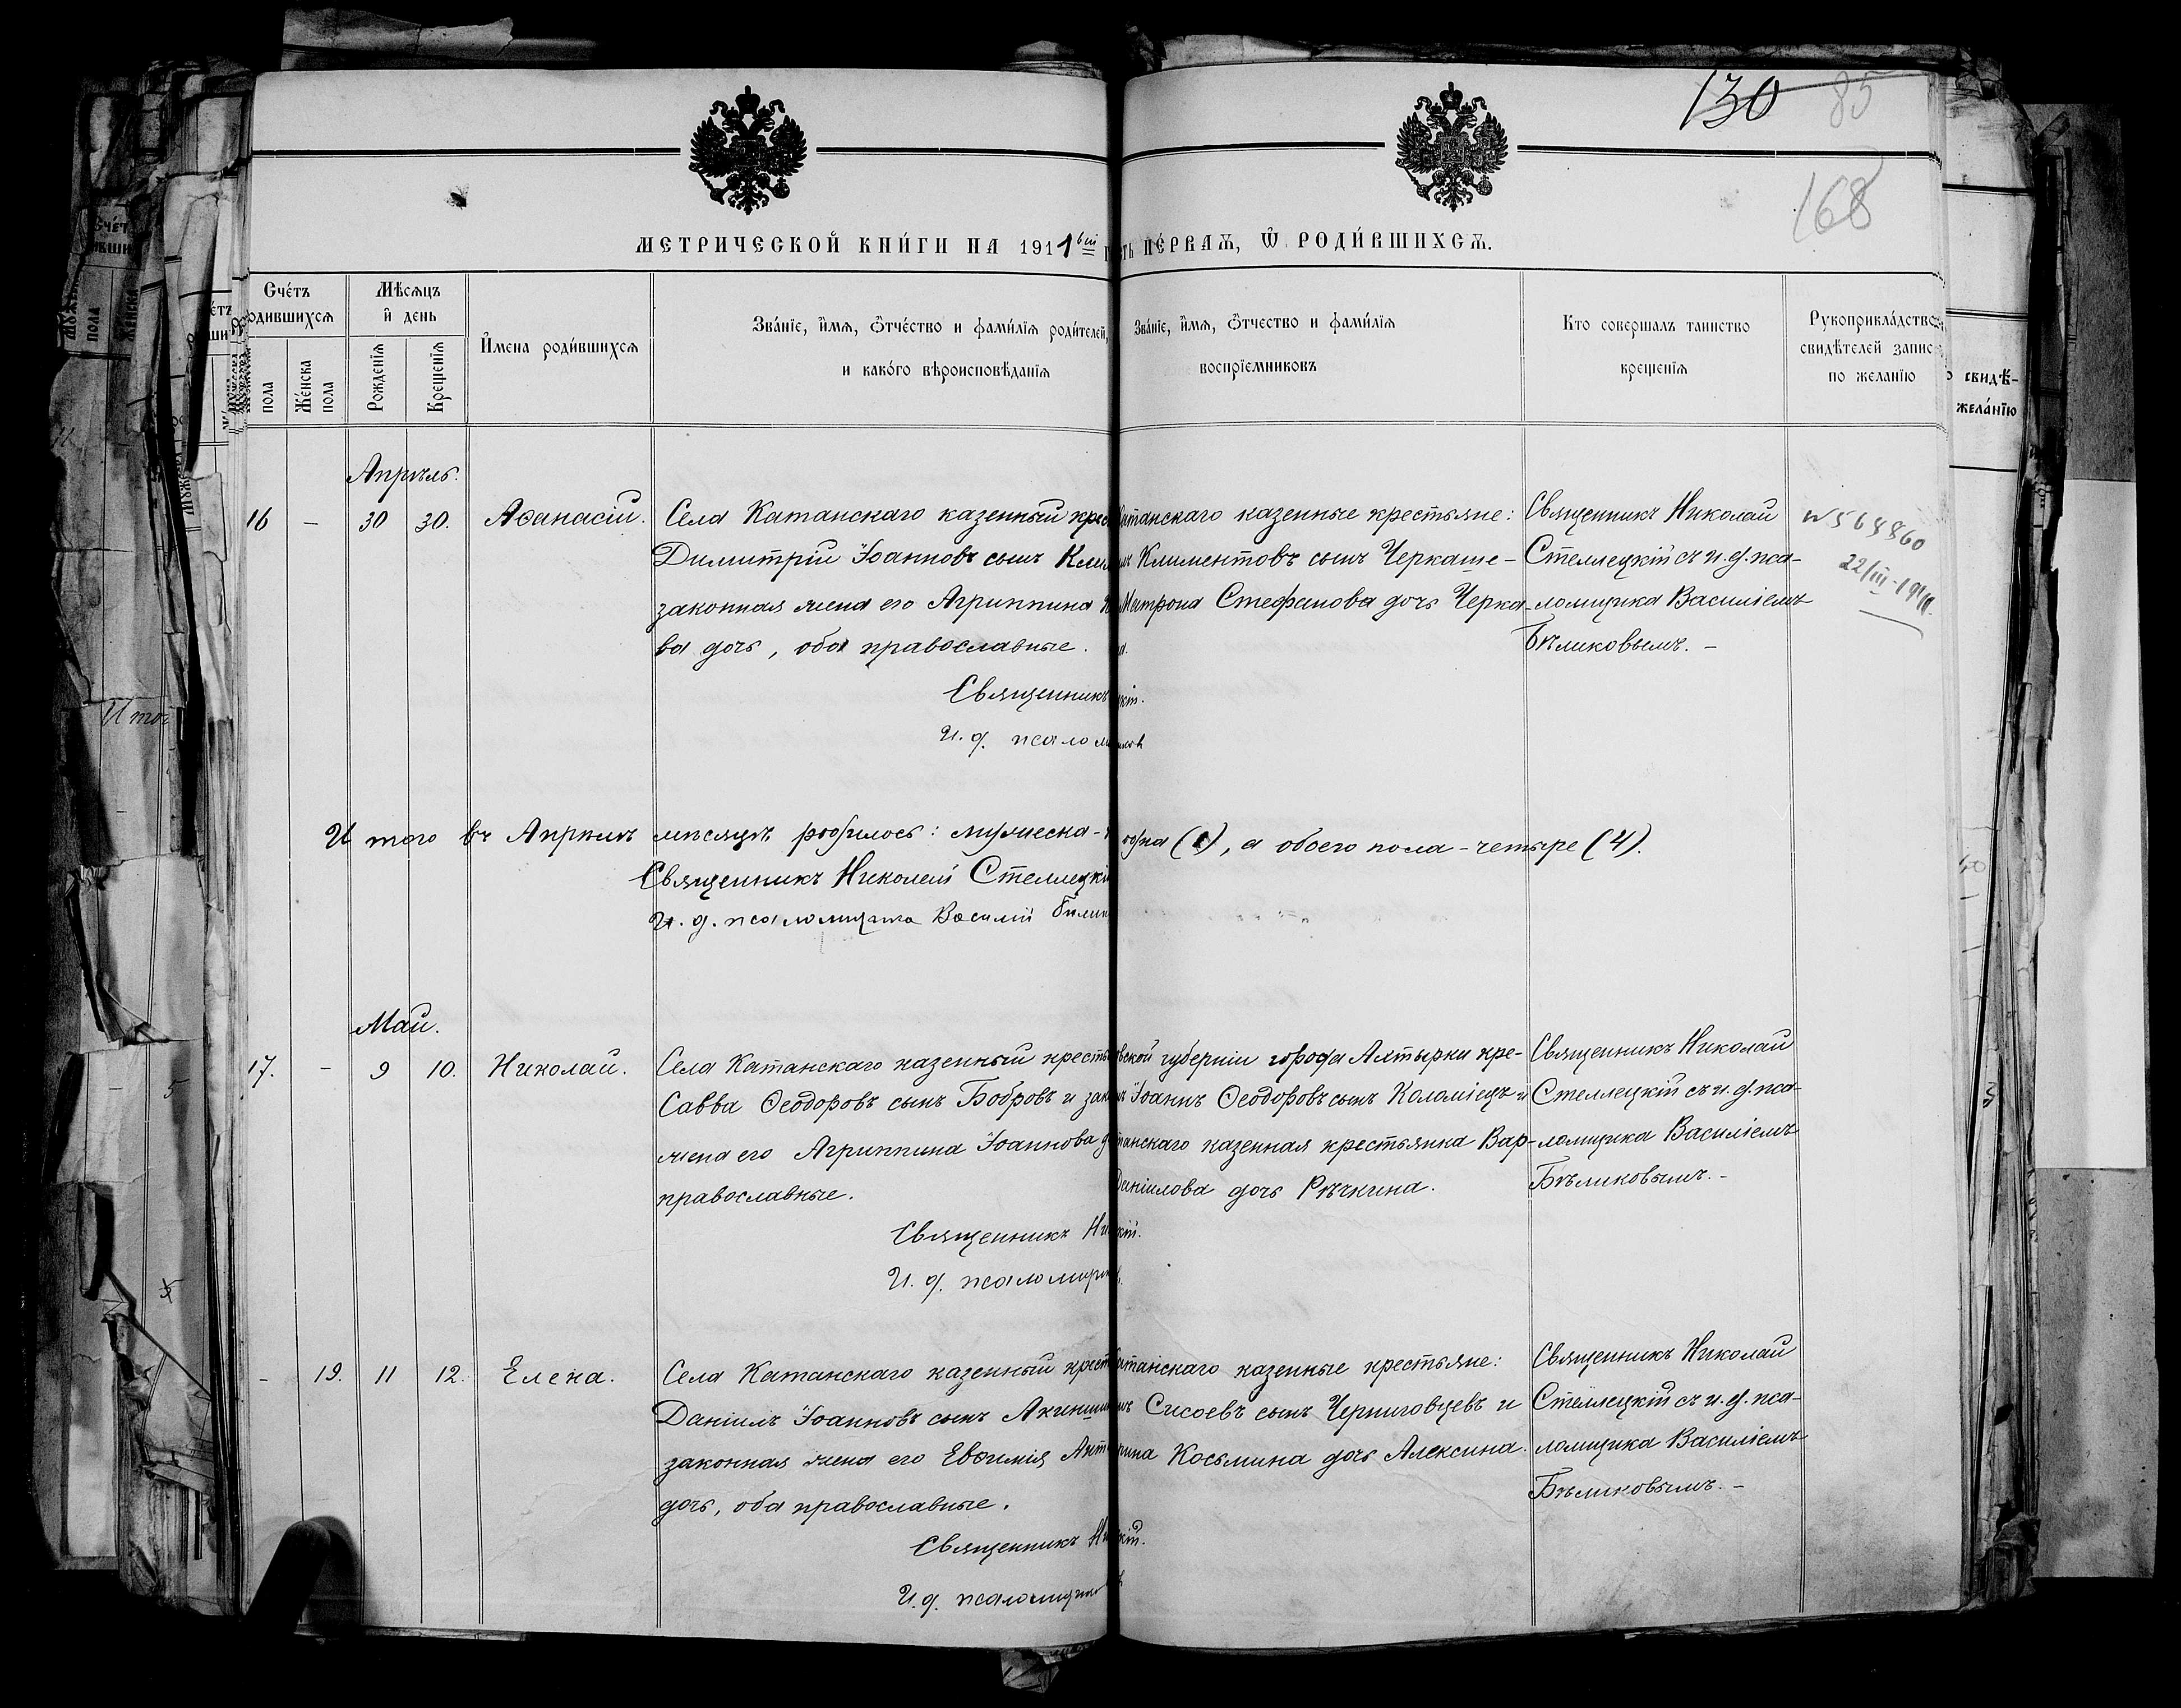 130 85
168
МЕТРИЧЕСКОЙ КНИ́ГИ НА 1911ый
ПЕ́РВАѦ, Ѽ РОДИ́ВШИХСѦ.
Сче́тъ родившихсѧ
Мѣсѧцъ и҆ день
И҆мена роди́вшихсѧ
Зва́нїе, и҆́мѧ, ѻ҆́тчество и фами́лїѧ роди́телей,
и како́го вѣроисповѣданїѧ
Зва́нїе, и҆́мѧ, ѻ҆́тчество и фами́лїѧ
воспрїемниковъ
Кто совершалъ таинство
крещенїѧ
Рукоприкла́дство
свидѣтелей запис
по желанїю
пола
Же́нска пола
Рожденїѧ
Крещенїѧ
свидѣ-
жела́нїю
Апрѣль.
16 – 30 30. Аѳанасій. Села Катанскаго казенный крес
Димитрій Іоанновъ сынъ
законная жена его Агриппина
ва дочь, оба православные.
Священникъ
И. д. псалом
катанскаго казенные крестьяне:
Климентовъ сынъ Черкаше-
Матрона Стефанова дочь Черка-
Священникъ Николай
Стеллецкій съ и. д. пса-
ломщика Василіемъ
Бѣликовымъ. –
№ 568860
22/III-1941
Итого въ Апрѣлѣ мѣсяцѣ родилось: мужеска - одна (1), а обоего пола - четыре (4).
Священникъ Николай Стеллецкі
И. д. псаломщика Василій Бѣлик
Май.
17. – 9 10. Николай. Села Катанскаго казенный кресть
Савва Ѳеодоровъ сынъ Бобровъ и зак
жена его Агриппина Іоаннова д
православные.
Священникъ Ни
И. д. псаломщик
вской губерніи города Ахтырки кре-
Іоаннъ Ѳеодоровъ сынъ Коломіецъ и
танскаго казенная крестьянка Вар-
Даніилова дочь Рѣчкина.
Священникъ Николай
Стеллецкій съ и. д. пса-
ломщика Василіемъ
Бѣликовымъ. –
– 19. 11 12. Елена. Села Катанскаго казенный крест
Даніилъ Іоанновъ сынъ Акинши
законная жена его Евѳимія Ант
дочь, оба православные.
Священникъ Ни
И. д. псаломщик
катанскаго казенные крестьяне:
Сисоевъ сынъ Черниговцевъ и
рина Косьмина дочь Алексина.
Священникъ Николай
Стеллецкій съ и. д. пса-
ломщика Василіемъ
Бѣликовымъ. –